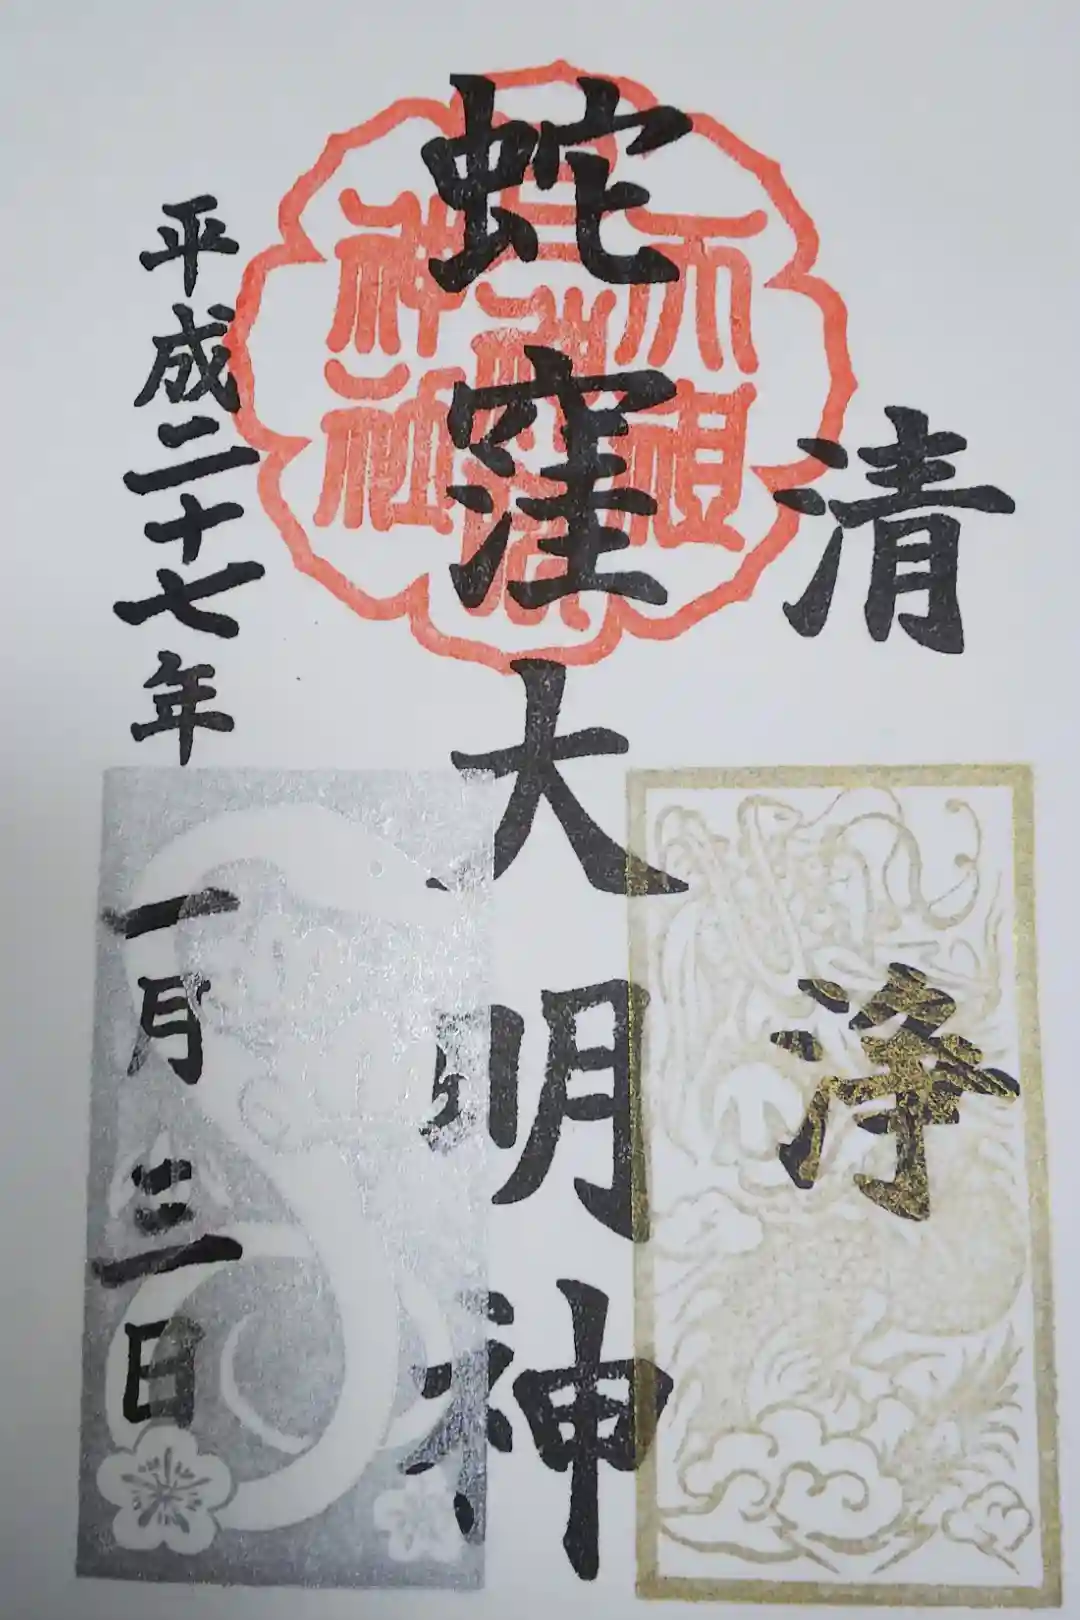 清浄
蛇窪大明神
平成二十七年一月三日